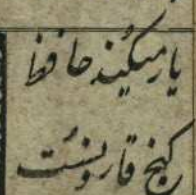 یار میکنید حافظ
کنج قارونست